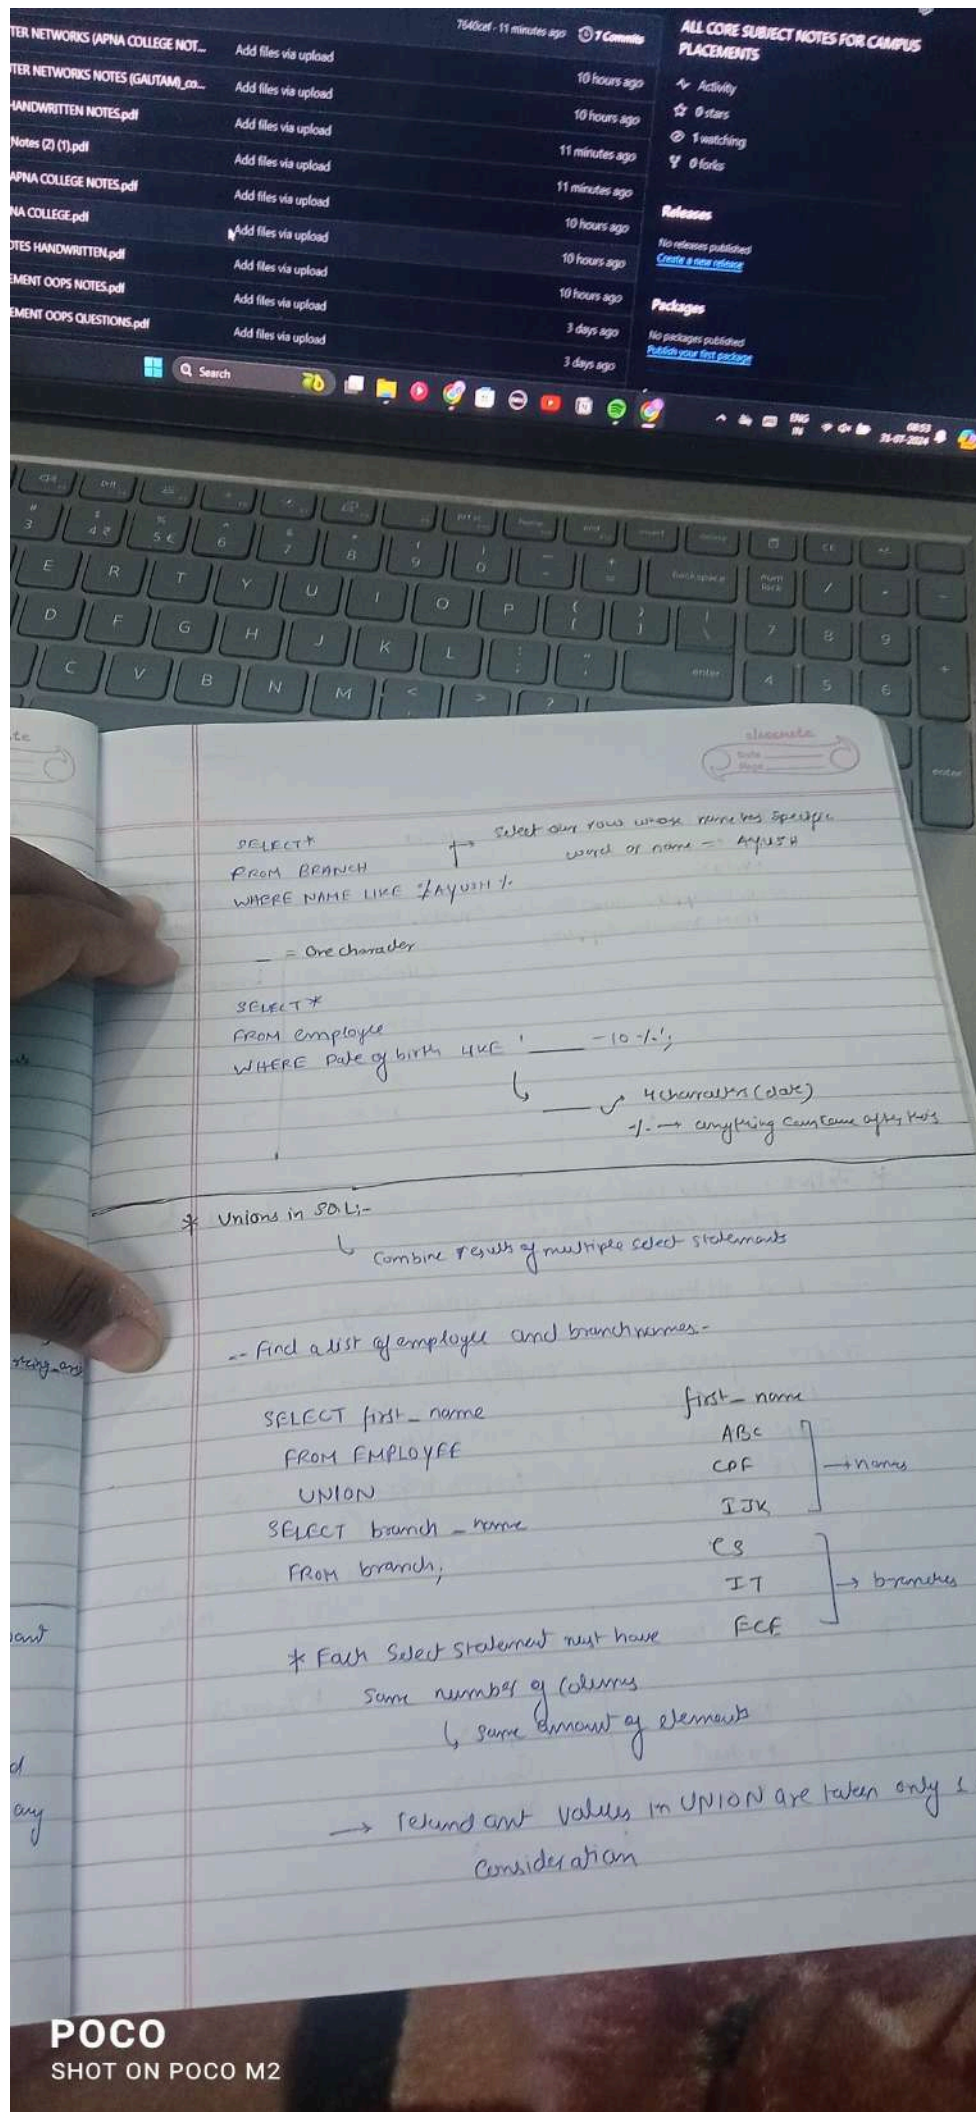 7640cef - 11 minutes ago 7 Commits
TER NETWORKS (APNA COLLEGE NOT... Add files via upload 10 hours ago
TER NETWORKS NOTES (GAUTAM)_co... Add files via upload 10 hours ago
HANDWRITTEN NOTES.pdf Add files via upload 11 minutes ago
Notes (2) (1).pdf Add files via upload 11 minutes ago
APNA COLLEGE NOTES.pdf Add files via upload 10 hours ago
NA COLLEGE.pdf Add files via upload 10 hours ago
OTES HANDWRITTEN.pdf Add files via upload 10 hours ago
EMENT OOPS NOTES.pdf Add files via upload 3 days ago
EMENT OOPS QUESTIONS.pdf Add files via upload 3 days ago
ALL CORE SUBJECT NOTES FOR CAMPUS
PLACEMENTS
Activity
0 stars
1 watching
0 forks
Releases
No releases published
Create a new release
Packages
No packages published
Publish your first package
Search
ENG
IN
08:53
31-07-2024
3 4 5 6 7 8 9 0
backspace
num lock
E R T Y U I O P
7 8 9
D F G H J K L
enter
4 5 6
C V B N M
enter
classmate
Date
Page
SELECT*
FROM BRANCH
WHERE NAME LIKE %AYUSH%
Select our rows whose name has specific
word or name - AYUSH
_ = One character
SELECT*
FROM employee
WHERE Date of birth LIKE '____-10%';
4 characters (date)
% → anything can come after this
* Unions in SQL:-
Combine result of multiple select statements
-- Find a list of employee and branch names-
SELECT first_name
FROM EMPLOYEE
UNION
SELECT branch_name
FROM branch;
first_name
ABC
CDF
IJK
→ names
CS
IT
ECE
→ branches
* Each Select statement must have
same number of columns
same amount of elements
→ redundant values in UNION are taken only 1
consideration
any
POCO
SHOT ON POCO M2